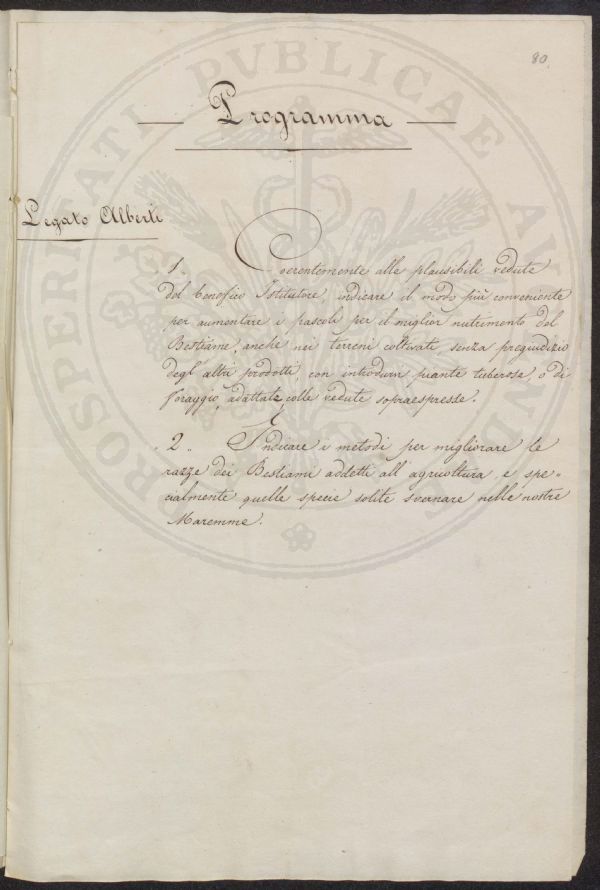 80.
Programma
Legato Alberti
1. Coerentemente alle plausibili vedute
del benefico Istitutore, indicare il modo più conveniente
per aumentare i pascoli per il miglior nutrimento del
Bestiame, anche nei terreni coltivati senza pregiudizio
degl'altri prodotti, con introdurvi piante tuberose, o di
foraggio, adattate colle vedute sopraespresse.
2. Indicare i metodi per migliorare le
razze dei Bestiami addetti all'agricoltura, e spe=
cialmente quelle specie solite svernare nelle nostre
Maremme.
PROSPERITATI PVBLICAE AVGENDAE